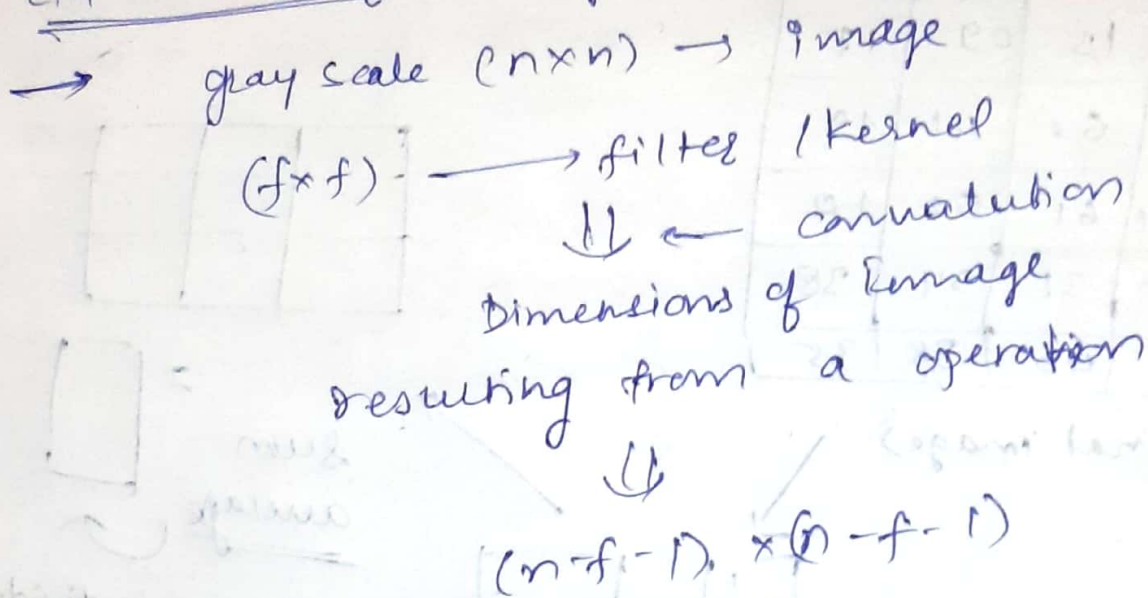 → gray scale (n×n) → image
(f×f) → filter / kernel
⇓ ← convalution
Dimensions of Image
resulting from a operation
⇓
(n-f-1) × (n-f-1)